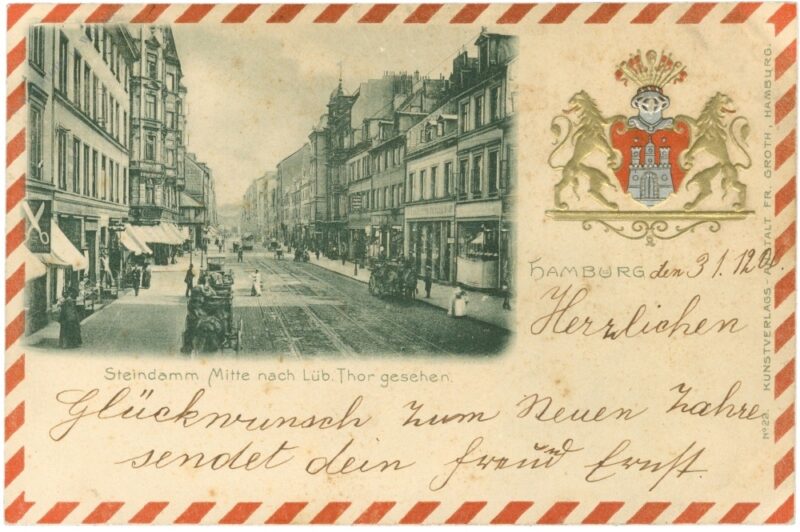 Steindamm Mitte nach Lüb. Thor gesehen.
HAMBURG den 31.12.00.
Herzlichen
Glückwunsch zum Neuen Jahre
sendet dein Freund Ernst.
No 22. KUNSTVERLAGS-ANSTALT FR. GROTH, HAMBURG.